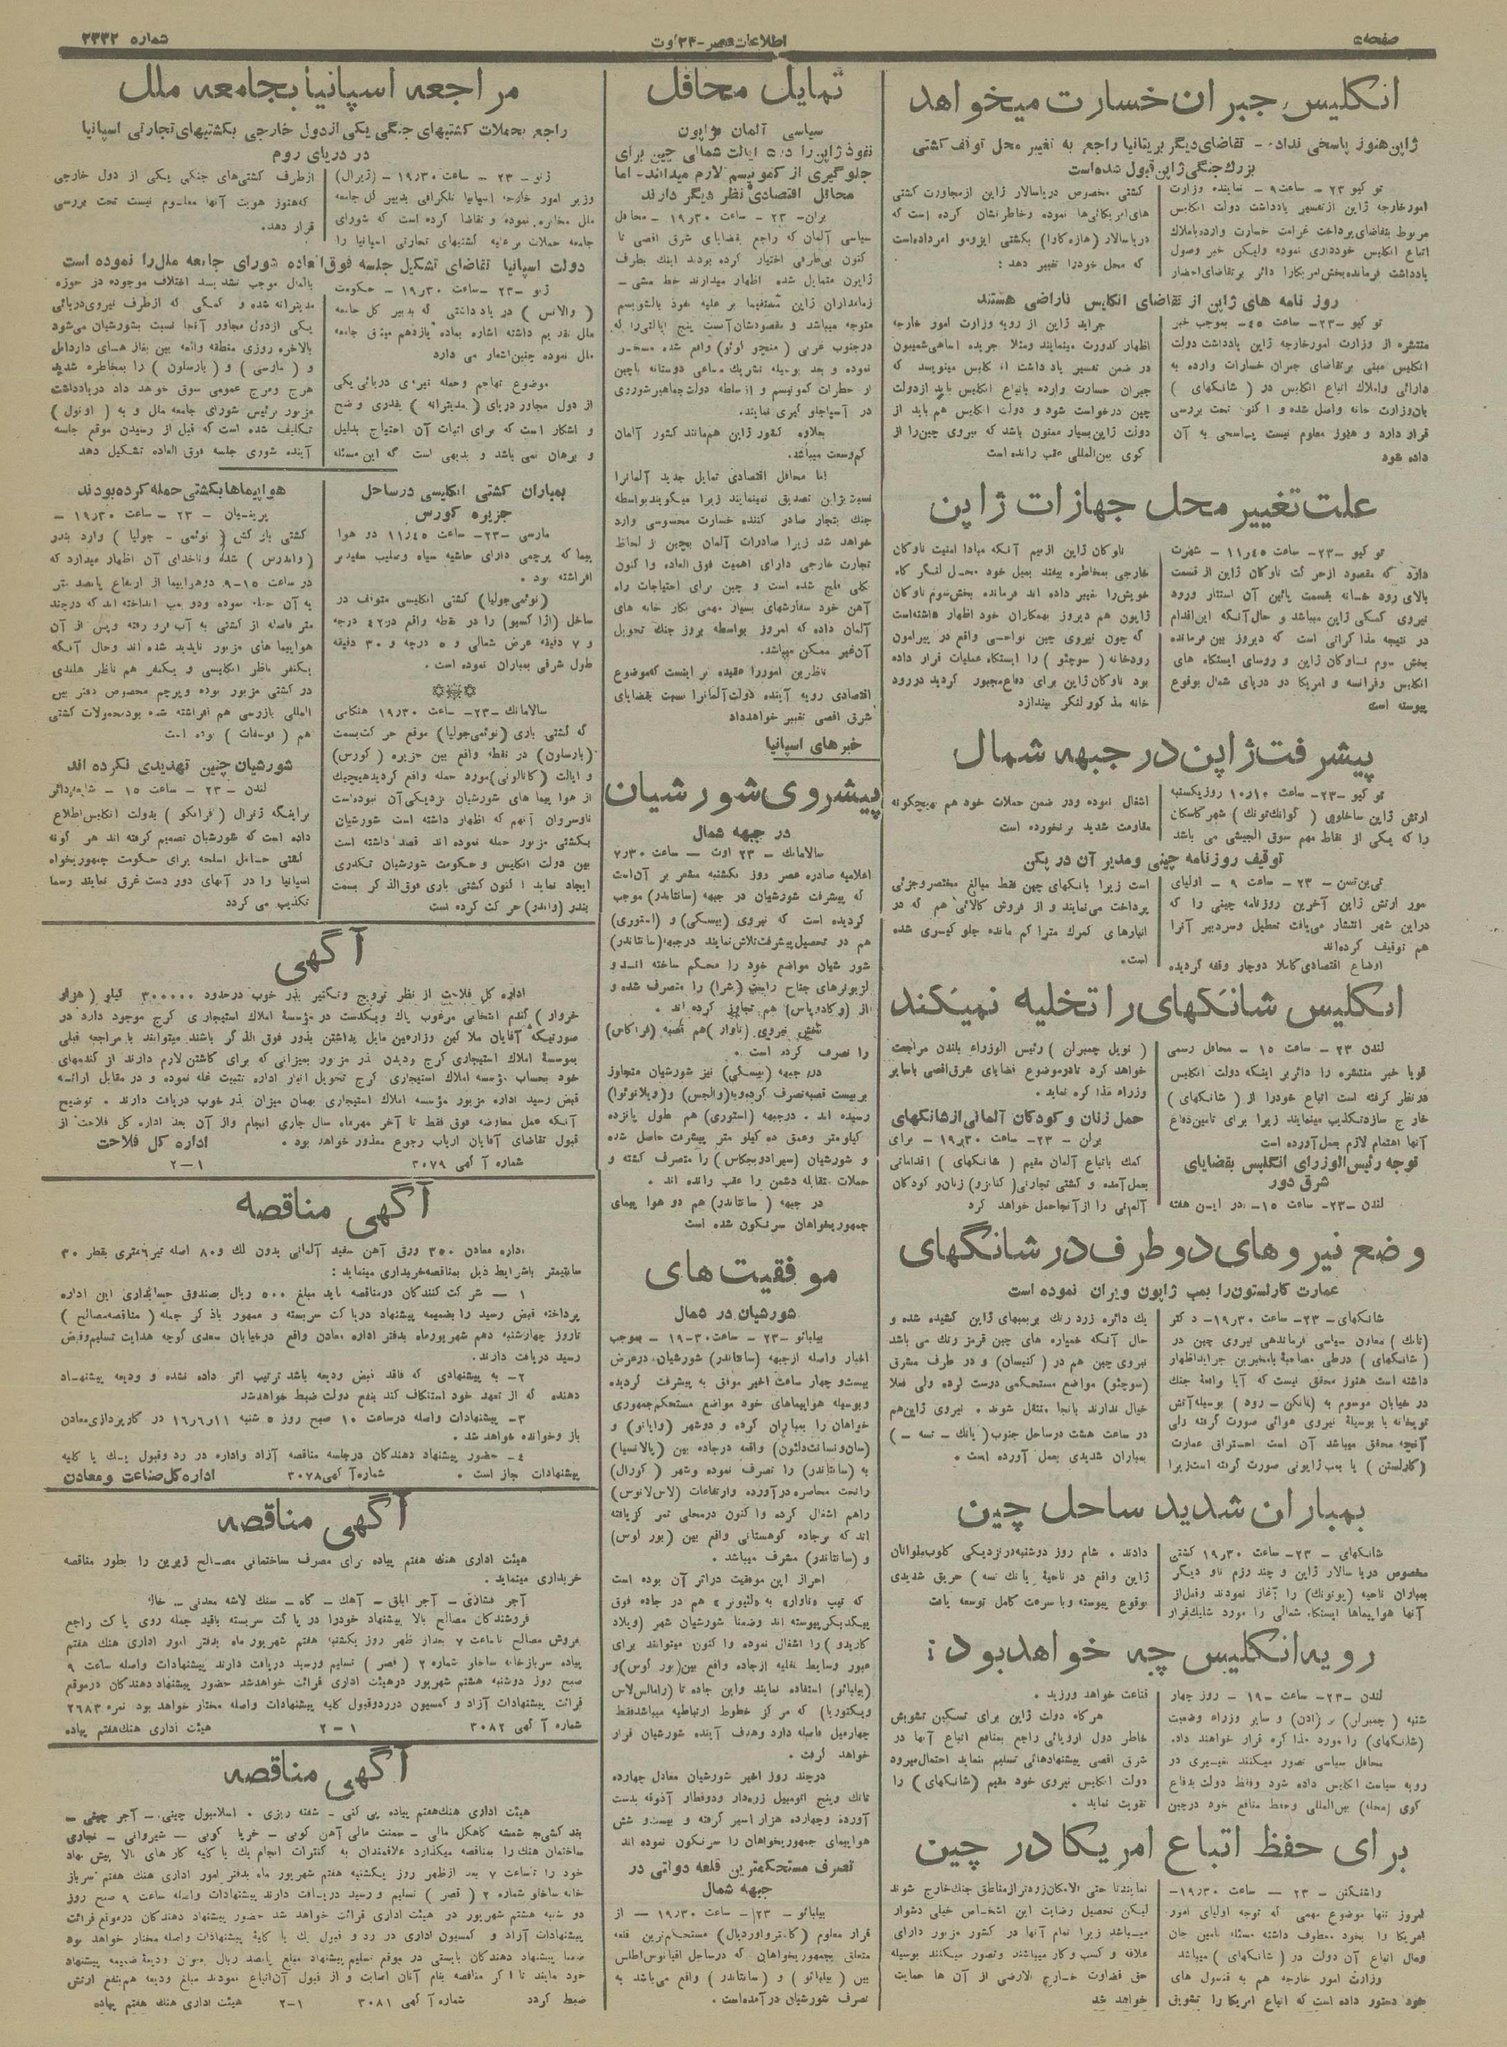 صفحه ۵
اطلاعات عصر - ۲۳ اوت
شماره ۲۳۳۲
انگلیس جبران خسارت میخواهد
ژاپن هنوز پاسخی نداده - تقاضای دیگر بریتانیا راجع به تغییر محل توقف کشتی
بزرك جنگی ژاپن قبول شده است
توکیو ۲۳ - ساعت ۹ - نماینده وزارت
امور خارجه ژاپن از تفسیر یادداشت دولت انگلیس
مربوط بتقاضای پرداخت غرامت خسارت وارده باملاك
اتباع انگلیس خودداری نموده ولیکن خبر وصول
یادداشت فرمانده بخش امریکا را دائر بر تقاضای احضار
کشتی مخصوص دریاسالار ژاپن از مجاورت کشتی
های امریکائی‌ها نموده و خاطر نشان کرده است که
دریاسالار (هازه‌کاوا) بکشتی ایزومو امر داده است
که محل خود را تغییر دهد:
روز نامه های ژاپن از تقاضای انگلیس ناراضی هستند
توکیو -۲۳- ساعت ۴۵- بموجب خبر
منتشره از وزارت امور خارجه ژاپن یادداشت دولت
انگلیس مبنی بر تقاضای جبران خسارات وارده به
دارائی و املاك اتباع انگلیس در ( شانگهای )
بآن وزارت خانه واصل شده و اکنون تحت بررسی
قرار دارد و هنوز معلوم نیست پاسخی به آن
داده شود
جراید ژاپن از رویه وزارت امور خارجه
اظهار کدورت مینمایند و مثلا جریده اساهی شیمبون
در ضمن تفسیر یادداشت انگلیس مینویسد که
جبران خسارت وارده باتباع انگلیس باید از دولت
چین درخواست شود و دولت انگلیس هم باید از
دولت ژاپن بسیار ممنون باشد که نیروی چین را از
کوی بین‌المللی عقب رانده است
علت تغییر محل جهازات ژاپن
توکیو -۲۳- ساعت ۱۱٫۴۵ - شهرت
دارد که مقصود از حرکت ناوگان ژاپن از قسمت
بالای رودخانه بقسمت پائین آن استتار ورود
نیروی کمکی ژاپن میباشد و حال آنکه این اقدام
در نتیجه مذاکراتی است که دیروز بین فرمانده
بخش سوم ناوگان ژاپن و روسای ایستگاه های
انگلیس و فرانسه و امریکا در دریای شمال بوقوع
پیوسته است
ناوگان ژاپن از بیم آنکه مبادا امنیت ناوگان
خارجی بمخاطره بیفتد بمیل خود محل لنگرگاه
خویش را تغییر داده اند فرمانده بخش سوم ناوگان
ژاپون هم دیروز بهمکاران خود اظهار داشته است
که چون نیروی چین نواحی واقع در پیرامون
رودخانه ( سوچئو ) را ایستگاه عملیات قرار داده
بود ناوگان ژاپن برای دفاع مجبور گردید در رود
خانه مذکور لنگر بیندازد
پیشرفت ژاپن در جبهه شمال
توکیو -۲۳- ساعت ۱۰٫۱۰ روز یکشنبه
ارتش ژاپن ساخلویی ( کوانك‌تونك ) شهر کالگان
را که یکی از نقاط مهم سوق الجیشی می باشد
اشغال نموده و در ضمن حملات خود هم بهیچگونه
مقاومت شدید برنخورده است
توقیف روزنامه چینی و مدیر آن در پکن
تی‌ین‌تسن - ۲۳- ساعت ۹ - اولیای
امور ارتش ژاپن آخرین روزنامه چینی را که
در این شهر انتشار می‌یافت تعطیل و سردبیر آنرا
هم توقیف کرده‌اند
اوضاع اقتصادی کاملا دوچار وقفه گردیده
است زیرا بانکهای چین فقط مبالغ مختصر و جزئی
پرداخت می‌نمایند و از فروش کالائی هم که در
انبارهای گمرك متراکم مانده جلوگیری شده
است.
انگلیس شانگهای را تخلیه نمیکند
لندن ۲۳ - ساعت ۱۵ - محافل رسمی
قویا خبر منتشره را دائر بر اینکه دولت انگلیس
در نظر گرفته است اتباع خود را از ( شانگهای )
خارج سازد تکذیب مینمایند زیرا برای تامین دفاع
آنها اهتمام لازم بعمل آورده است
توجه رئیس‌الوزرای انگلیس بقضایای
شرق دور
لندن -۲۳- ساعت ۱۵- در این هفته
( نویل چمبرلن ) رئیس الوزراء بلندن مراجعت
خواهد کرد تا در موضوع قضایای شرق اقصی با سایر
وزراء مذاکره نماید.
حمل زنان و کودکان آلمانی از شانگهای
برلن - ۲۳- ساعت ۱۹٫۳۰ - برای
کمك باتباع آلمان مقیم ( شانگهای ) اقداماتی
بعمل آمده و کشتی تجارتی زنان و کودکان
آلمانی را از آنجا حمل خواهد کرد
وضع نیروهای دو طرف در شانگهای
عمارت کارلستون را بمب ژاپون ویران نموده است
شانگهای -۲۳- ساعت ۱۹٫۳۰- دکتر
(تانك ) معاون سیاسی فرماندهی نیروی چین در
( شانگهای ) در طی مصاحبه با مخبرین جراید اظهار
داشته است هنوز محقق نیست که آیا واقعه جنك
در خیابان موسوم به (نانکن - رود ) بوسیله آتش
توپخانه یا بوسیله نیروی هوائی صورت گرفته ولی
آنچه محقق میباشد آن است احتراقی عمارت
(کارلستن ) با بمب ژاپونی صورت گرفته است زیرا
یك دائره زرد رنك بر بمبهای ژاپن کشیده شده و
حال آنکه خمپاره های چین قرمز رنك می باشد
نیروی چین هم در ( کنیسان ) و در طرف مشرق
(سوچئو ) مواضع مستحکمی درست کرده ولی فعلا
خیال ندارند بآنجا منتقل شوند . نیروی ژاپن هم
در ساعت هشت در ساحل جنوب ( یانك - تسه - )
بمباران شدیدی بعمل آورده است .
بمباران شدید ساحل چین
شانگهای - ۲۳- ساعت ۱۹٫۳۰ کشتی
مخصوص دریاسالار ژاپن و چند رزم ناو دیگر
بمباران ناحیه (پوتونك) را آغاز نمودند و قبل از
آنها هواپیماها ایستگاه شمالی را مورد شلیك قرار
دادند . شام روز دوشنبه در نزدیکی کلوب ملوانان
ژاپن واقع در ناحیه ( یانك تسه ) حریق شدیدی
بوقوع پیوسته و با سرعت کامل توسعه یافت
رویه انگلیس چه خواهد بود ؛
لندن -۲۳- ساعت -۱۹ - روز چهار
شنبه ( چمبرلن ) و (ادن) و سایر وزراء وضعیت
(شانگهای) را مورد مذاکره قرار خواهند داد.
محافل سیاسی تصور میکنند تغییری در
رویه سیاست انگلیس داده شود و فقط دولت بدفاع
کوی (محله) بین‌المللی و حفظ منافع خود در چین
قناعت خواهد ورزید .
هرگاه دولت ژاپن برای تسکین تشویش
خاطر دول اروپائی راجع بمنافع اتباع آنها در
شرق اقصی پیشنهادهائی تسلیم نماید احتمال میرود
دولت انگلیس نیروی خود مقیم (شانگهای ) را
تقویت نماید .
برای حفظ اتباع امریکا در چین
واشنگتن - ۲۳ - ساعت ۱۹٫۳۰-
امروز تنها موضوع مهمی که توجه اولیای امور
امریکا را بخود معطوف داشته مسئله تامین جان
و مال اتباع آن دولت در ( شانگهای ) میباشد
وزارت امور خارجه هم به قنسول های
خود دستور داده است که اتباع امریکا را تشویق
نمایند تا حتی الامکان زودتر از مناطق جنك خارج شوند
لیکن تحصیل رضایت این اشخاص خیلی دشوار
میباشد زیرا تمام آنها در کشور مزبور دارای
علاقه و کسب و کار میباشند و تصور میکنند بوسیله
حق قضاوت خارج الارضی از آن ها حمایت
خواهد شد
تمایل محافل
سیاسی آلمان بژاپون
نفوذ ژاپن را در ۵ ایالت شمالی چین برای
جلوگیری از کمونیسم لازم میدانند - اما
محافل اقتصادی نظر دیگر دارند
برلن - ۲۳ - ساعت ۱۹٫۳۰ - محافل
سیاسی آلمان که راجع بقضایای شرق اقصی تا
کنون بی‌طرفی اختیار کرده بودند اینك بطرف
ژاپون متمایل شده اظهار میدارند خط مشی
زمامداران ژاپن مستقیما بر علیه نفوذ بالشویسم
متوجه میباشد و مقصودشان آنست پنج ایالتی را که
در جنوب غربی ( منچو لوئو) واقع شده مسخر
نموده و بعد بوسیله تشریك مساعی دوستانه با چین
از خطرات کمونیسم و از سلطه دولت جماهیر شوروی
در آسیا جلوگیری نمایند.
بعلاوه کشور ژاپن هم مانند کشور آلمان
کم وسعت میباشد.
اما محافل اقتصادی تمایل جدید آلمانرا
نسبت بژاپن تصدیق نمینمایند زیرا میگویند بواسطه
جنك بتجار صادر کننده خسارت محسوسی وارد
خواهد شد زیرا صادرات آلمان بچین از لحاظ
تجارت خارجی دارای اهمیت فوق العاده و اکنون
بکلی فلج شده است و چین برای احتیاجات راه
آهن خود سفارشهای بسیار مهمی بکارخانه های
آلمان داده که امروز بواسطه بروز جنك تحویل
آن غیر ممکن میباشد.
ناظرین امور را عقیده بر اینست که موضوع
اقتصادی رویه آینده دولت آلمانرا نسبت بقضایای
شرق اقصی تغییر خواهد داد
خبر های اسپانیا
پیشروی شورشیان
در جبهه شمال
سالامانك - ۲۳ اوت - ساعت ۷٫۳۰
اعلامیه صادره عصر روز یکشنبه مشعر بر آن است
که پیشرفت شورشیان در جبهه (سانتاندر) موجب
گردیده است که نیروی (بیسکی) و (استوری)
هم در تحصیل پیشرفت تلاش نمایند در جبهه (سانتاندر)
شورشیان مواضع خود را محکم ساخته اند و
هم تجاوز کرده اند .
نیروی (ناوار) هم قصبه (فراکاس)
را تصرف کرده است .
در جبهه (بیسکی) نیز شورشیان متجاوز
بر بیست قصبه تصرف کرده و به (والجس) و (ویلانوئوا)
رسیده اند . در جبهه (استوری) هم طول پانزده
کیلومتر و عمق ده کیلو متر پیشرفت حاصل شده
و شورشیان را متصرف گشته و
حملات متقابله دشمن را عقب رانده اند .
در جبهه ( سانتاندر) هم دو هوا پیمای
جمهوریخواهان سرنگون شده است
موفقیت های
شورشیان در شمال
بیلبائو -۲۳ - ساعت ۱۹٫۳۰ - بموجب
اخبار واصله از جبهه (سانتاندر) شورشیان در عرض
بیست و چهار ساعت اخیر موفق به پیشرفت گردیده
و بوسیله هواپیماهای خود مواضع مستحکم جمهوری
خواهان را بمباران کرده و دو شهر
واقعه در جاده بین (پالانسیا)
به (سانتاندر) را تصرف نموده و شهر ( کورال)
را تحت محاصره در آورده و ارتفاعات
را هم اشغال کرده و اکنون در محلی تمرکز یافته
اند که بر جاده کوهستانی واقع بین
و (سانتاندر) مشرف میباشد .
احراز این موفقیت در اثر آن بوده است
که تیپ هم در جاده فوق
بیکدیگر پیوسته اند و ضمنا شورشیان شهر
را اشغال نموده و اکنون میتوانند برای
عبور وسایط نقلیه از جاده واقع بین
(بیلبائو) استفاده نمایند و این جاده تا
که مرکز خطوط ارتباطیه میباشد فقط
چهار میل فاصله دارد و هدف آینده شورشیان قرار
خواهد گرفت .
در چند روز اخیر شورشیان معادل چهارده
تانك و پنج اتومبیل زره‌دار و دو قطار آذوقه بدست
آورده و چهارده هزار اسیر گرفته و بیست و شش
هواپیمای جمهوریخواهان را سرنگون نموده اند
تصرف مستحکمترین قلعه دولتی در
جبهه شمال
بیلبائو - ۲۳ - ساعت ۱۹٫۳۰ - از
قرار معلوم مستحکم‌ترین قلعه
متعلق بجمهوریخواهان که در ساحل اقیانوس اطلس
بین ( بیلبائو ) و (سانتاندر) واقع می‌باشد به
تصرف شورشیان در آمده است.
مراجعه اسپانیا بجامعه ملل
راجع بحملات کشتیهای جنگی یکی از دول خارجی بکشتیهای تجارتی اسپانیا
در دریای روم
ژنو - ۲۳ - ساعت ۱۹٫۳۰ - (ژیرال)
وزیر امور خارجه اسپانیا تلگرافی بدبیر کل جامعه
ملل مخابره نموده و تقاضا کرده است که شورای
جامعه حملات بر علیه کشتیهای تجارتی اسپانیا را
از طرف کشتی‌های جنگی یکی از دول خارجی
که هنوز هویت آنها معلوم نیست تحت بررسی
قرار دهد.
دولت اسپانیا تقاضای تشکیل جلسه فوق‌العاده شورای جامعه ملل را نموده است
ژنو -۲۳- ساعت ۱۹٫۳۰ - حکومت
( والانس ) در یادداشتی که بدبیر کل جامعه
ملل تقدیم داشته اشاره بماده یازدهم میثاق جامعه
ملل نموده چنین اشعار می دارد
موضوع تهاجم و حمله نیروی دریائی یکی
از دول مجاور دریای ( مدیترانه ) بقدری واضح
و آشکار است که برای اثبات آن احتیاج بدلیل
و برهان نمی باشد و بدیهی است که این مسئله
بالمال موجب تشدید اختلاف موجوده در حوزه
مدیترانه شده و کمکی که از طرف نیروی دریائی
یکی از دول مجاور آنجا نسبت بشورشیان می‌شود
بالاخره روزی منطقه واقعه بین بغاز های داردانل
و ( مارسی ) و (بارسلون ) را بمخاطره شدید
هرج و مرج عمومی سوق خواهد داد در یادداشت
مزبور برئیس شورای جامعه ملل و به ( اونول )
تکلیف شده است که قبل از رسیدن موقع جلسه
آینده شوری جلسه فوق العاده تشکیل دهد
بمباران کشتی انگلیسی در ساحل
جزیره کورس
مارسی -۲۳- ساعت ۱۱٫۴۵ دو هوا
پیما که پرچمی دارای حاشیه سیاه و صلیب سفید بر
افراشته بود .
(نوئمی جولیا) کشتی انگلیسی متوقف در
ساحل را در نقطه واقع در ۴۲ درجه
و ۷ دقیقه عرض شمالی و ۵ درجه و ۳۰ دقیقه
طول شرقی بمباران نموده است .
سالامانك -۲۳- ساعت ۱۹٫۳۰ هنگامی
که کشتی باری (نوئمی جولیا) موقع حرکت بسمت
(بارسلون) در نقطه واقع بین جزیره (کورس)
و ایالت (کاتالونی) مورد حمله واقع گردید هیچیك
از هوا پیما های شورشیان نزدیکی آن نبوده است
ناوسروان آنهم که اظهار داشته است شورشیان
بکشتی مزبور حمله نموده اند قصد داشته است
بین دولت انگلیس و حکومت شورشیان تیرگی
ایجاد نماید اکنون کشتی باری فوق‌الذکر بسمت
بندر (واندر) حرکت کرده است
هواپیماها بکشتی حمله کرده بودند
پرپینیان - ۲۳ - ساعت ۱۹٫۳۰ -
کشتی بارکش ( نوئمی - جولیا ) وارد بندر
( واندرس ) شده و ناخدای آن اظهار میدارد که
در ساعت ۹٫۱۵ دو هواپیما از ارتفاع پانصد متر
به آن حمله نموده و دو بمب انداخته اند که در چند
متر فاصله از کشتی به آب فرو رفته و پس از آن
هواپیما های مزبور ناپدید شده اند و حال آنکه
یکنفر ناظر انگلیسی و یکنفر هم ناظر هلندی
در کشتی مزبور بوده و پرچم مخصوص دفتر بین
المللی بازرسی هم افراشته شده بود محمولات کشتی
هم ( فوسفات ) بوده است
شورشیان چنین تهدیدی نکرده اند
لندن - ۲۳ - ساعت ۱۵ - شایعه دائر
براینکه ژنرال ( فرانکو ) بدولت انگلیس اطلاع
داده است که شورشیان تصمیم گرفته اند هر گونه
کشتی حامل اسلحه برای حکومت جمهوریخواه
اسپانیا را در آبهای دور دست غرق نمایند رسما
تکذیب می گردد
آگهی
اداره کل فلاحت از نظر ترویج و تکثیر بذر خوب در حدود ۳۰۰۰۰۰ کیلو ( هزار
خروار ) گندم انتخابی مرغوب پاك و یکدست در مؤسسه املاك استیجاری کرج موجود دارد در
صورتیکه آقایان ملاکین و زارعین مایل بداشتن بذر فوق الذکر باشند میتوانند با مراجعه قبلی
بموسسه املاك استیجاری کرج و دیدن بذر مزبور بمیزانی که برای کاشتن لازم دارند از گندمهای
خود بحساب مؤسسه املاك استیجاری کرج تحویل انبار اداره تثبیت غله نموده و در مقابل ارائه
قبض رسید اداره مزبور مؤسسه املاك استیجاری بهمان میزان بذر خوب دریافت دارند . توضیح
آنکه عمل معاوضه فوق فقط تا آخر مهرماه سال جاری انجام و از آن بعد اداره کل فلاحت از
قبول تقاضای آقایان ارباب رجوع معذور خواهد بود .
اداره کل فلاحت
شماره آگهی ۳۰۷۹
۲-۱
آگهی مناقصه
اداره معادن ۳۵۰ ورق آهن سفید آلمانی بدون لك و ۸۰ اصله تیر ۶ متری بقطر ۳۰
سانتیمتر باشرایط ذیل بمناقصه خریداری مینماید :
۱ - شرکت کنندگان در مناقصه باید مبلغ ۵۰۰ ریال بصندوق حسابداری این اداره
پرداخته قبض رسید را بضمیمه پیشنهاد در پاکت سربسته و ممهور با ذکر جمله ( مناقصه مصالح )
تا روز چهارشنبه دهم شهریور ماه بدفتر اداره معادن واقع در خیابان سعدی کوچه هدایت تسلیم و قبض
رسید دریافت دارند.
۲- به پیشنهادی که فاقد قبض ودیعه باشد ترتیب اثر داده نشده و ودیعه پیشنهاد
دهنده که از تعهد خود استنکاف کند بنفع دولت ضبط خواهد شد
۳- پیشنهادات واصله در ساعت ۱۰ صبح روز ۵ شنبه ۱۶٫۶٫۱۱ در کارپردازی معادن
باز و خوانده خواهد شد .
۴ - حضور پیشنهاد دهندگان در جلسه مناقصه آزاد و اداره در رد و قبول يك یا کلیه
پیشنهادات مجاز است .
شماره آگهی ۳۰۷۸
اداره کل صناعت و معادن
آگهی مناقصه
هیئت اداری هنك هفتم پیاده برای مصرف ساختمانی مصالح زیرین را بطور مناقصه
خریداری مینماید .
آجر فشاری - آجر ابلق - آهك - گاه - سنك لاشه معدنی - خاك
فروشندگان مصالح بالا پیشنهاد خود را در پاکت سربسته باقید جمله روی پاکت راجع
بفروش مصالح تا ساعت ۷ بعد از ظهر روز یکشنبه هفتم شهریور ماه بدفتر امور اداری هنك هفتم
پیاده سربازخانه ساخلو شماره ۲ ( قصر ) تسلیم و رسید دریافت دارند پیشنهادات واصله ساعت ۹
صبح روز دوشنبه هشتم شهریور در هیئت اداری قرائت خواهد شد حضور پیشنهاد دهندگان در موقع
قرائت پیشنهادات آزاد و کمسیون در رد و قبول کلیه پیشنهادات واصله مختار خواهد بود نمره ۲۶۸۳
شماره آگهی ۳۰۸۲
۲-۱
هیئت اداری هنك هفتم پیاده
آگهی مناقصه
هیئت اداری هنك هفتم پیاده پی کنی - شفته ریزی . اسلامبول چینی - آجر چینی -
بند کشی - شیروانی - نجاری
ساختمان هنك را بمناقصه میگذارد علاقمندان به کنترات انجام يك یا کلیه کار های بالا پیش نهاد
خود را تا ساعت ۷ بعد از ظهر روز یکشنبه هفتم شهریور ماه بدفتر امور اداری هنك هفتم سرباز
خانه ساخلو شماره ۲ ( قصر ) تسلیم و رسید دریافت دارند پیشنهادات واصله ساعت ۹ صبح روز
دو شنبه هشتم شهریور در هیئت اداری قرائت خواهد شد حضور پیشنهاد دهندگان در موقع قرائت
پیشنهادات آزاد و کمسیون اداری در رد و قبول يك یا کلیه پیشنهادات واصله مختار خواهد بود
ضمنا پیشنهاد دهندگان بایستی در موقع تسلیم پیشنهاد مبلغ پانصد ریال بعنوان ودیعه ضمیمه پیشنهاد
خود نمایند تا اگر مناقصه بنام آنان اصابت و از قبول آن امتناع نمودند مبلغ ودیعه هم بنفع ارتش
ضبط گردد
شماره آگهی ۳۰۸۱
۲-۱
هیئت اداری هنك هفتم پیاده